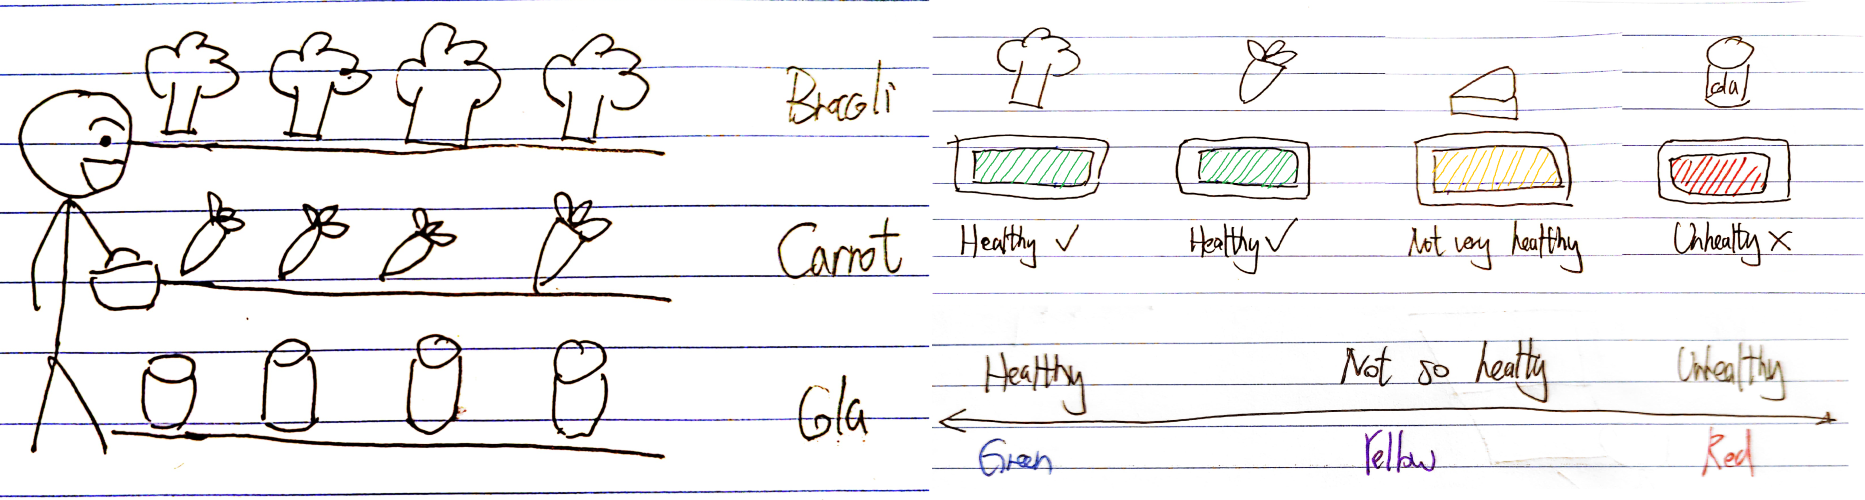 Brocoli
Carrot
Cola
cola
Healthy ✓
Healthy ✓
Not very healthy
Unhealthy ×
Healthy
Not so healty
Unhealthy
Green
Yellow
Red